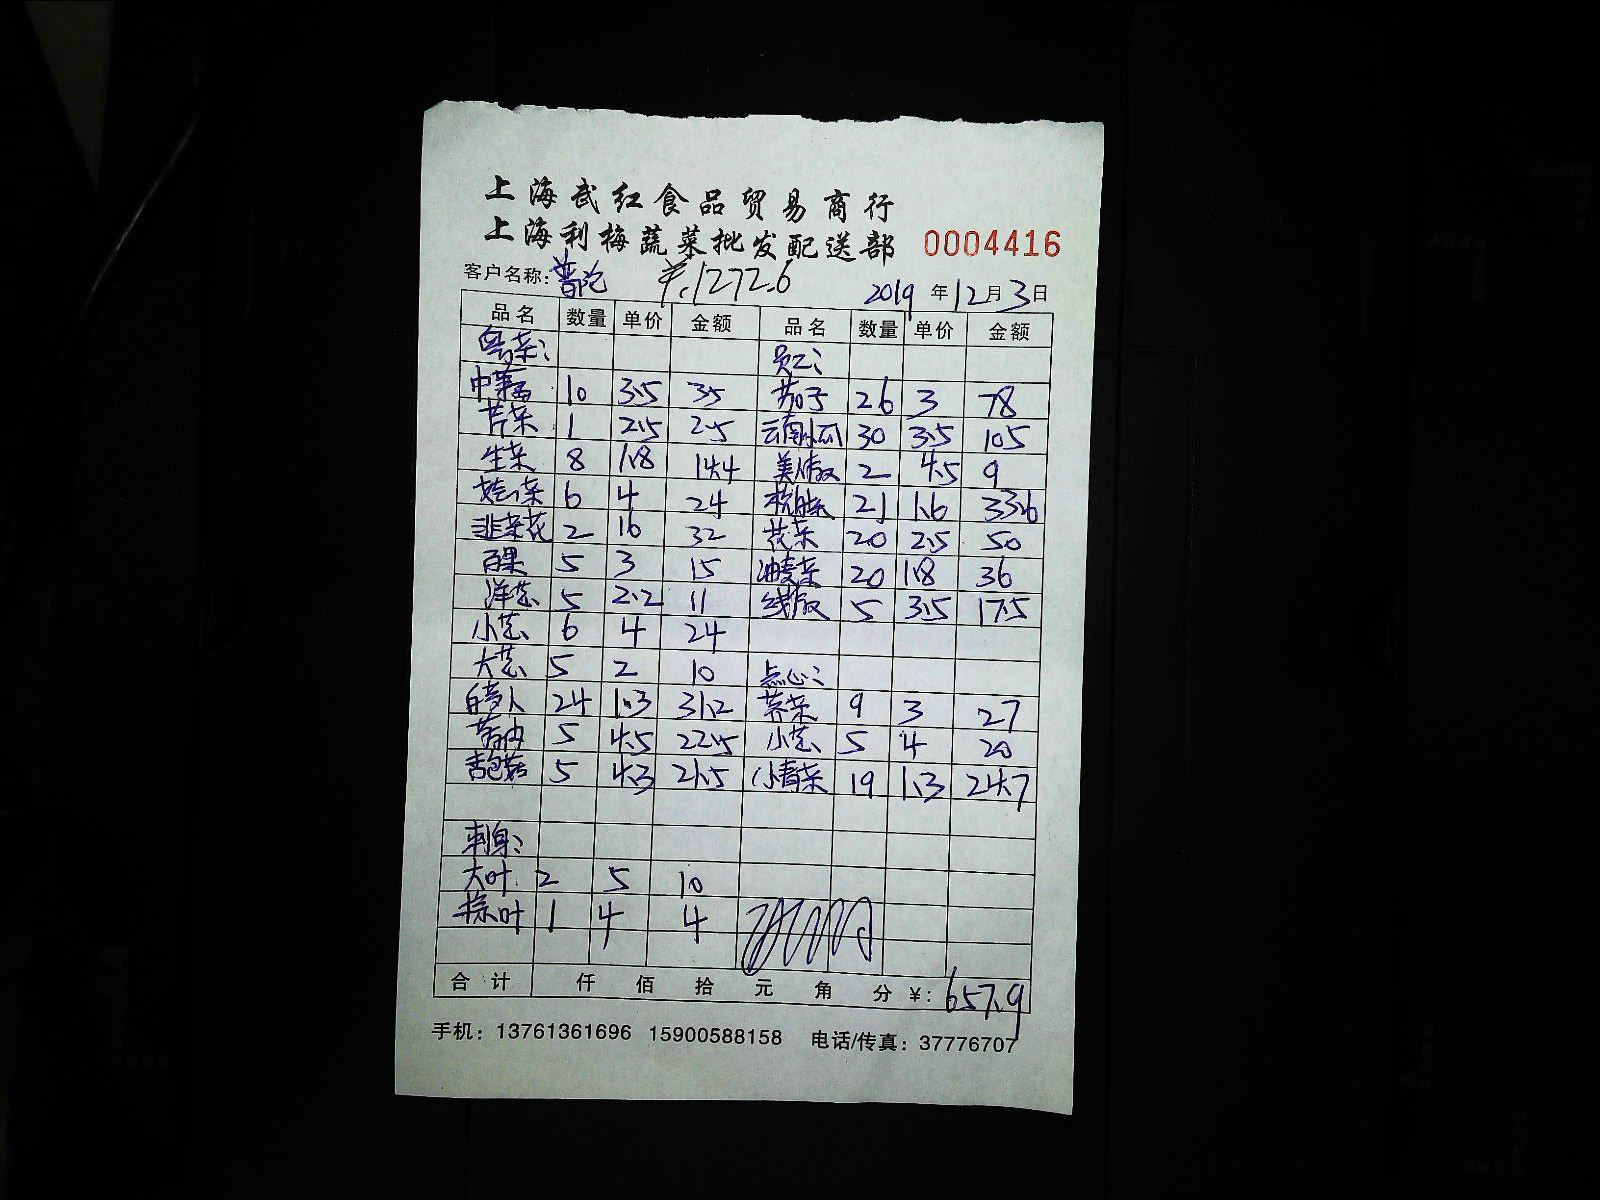 上海武红食品贸易商行
上海利梅蔬菜批发配送部 0004416
客户名称: 普陀 ¥.1272.6 2019 年 12 月 3 日
品名 数量 单价 金额 品名 数量 单价 金额
员工:
10 3.5 35 茄子 26 3 78
芹菜 1 2.5 2.5 云南小瓜 30 3.5 105
生菜 8 1.8 14.4 美人椒 2 4.5 9
娃娃菜 6 4 24 21 1.6 33.6
韭菜花 2 16 32 花菜 20 2.5 50
5 3 15 油麦菜 20 1.8 36
洋葱 5 2.2 11 线椒 5 3.5 17.5
小葱 6 4 24
大葱 5 2 10 点心:
白萝卜 24 1.3 31.2 荠菜 9 3 27
5 4.5 22.5 小葱 5 4 20
杏鲍菇 5 4.3 21.5 小青菜 19 1.3 24.7
刺身:
大叶 2 5 10
粽叶 1 4 4
合计 仟 佰 拾 元 角 分 ¥: 657.9
手机: 13761361696 15900588158 电话/传真: 37776707